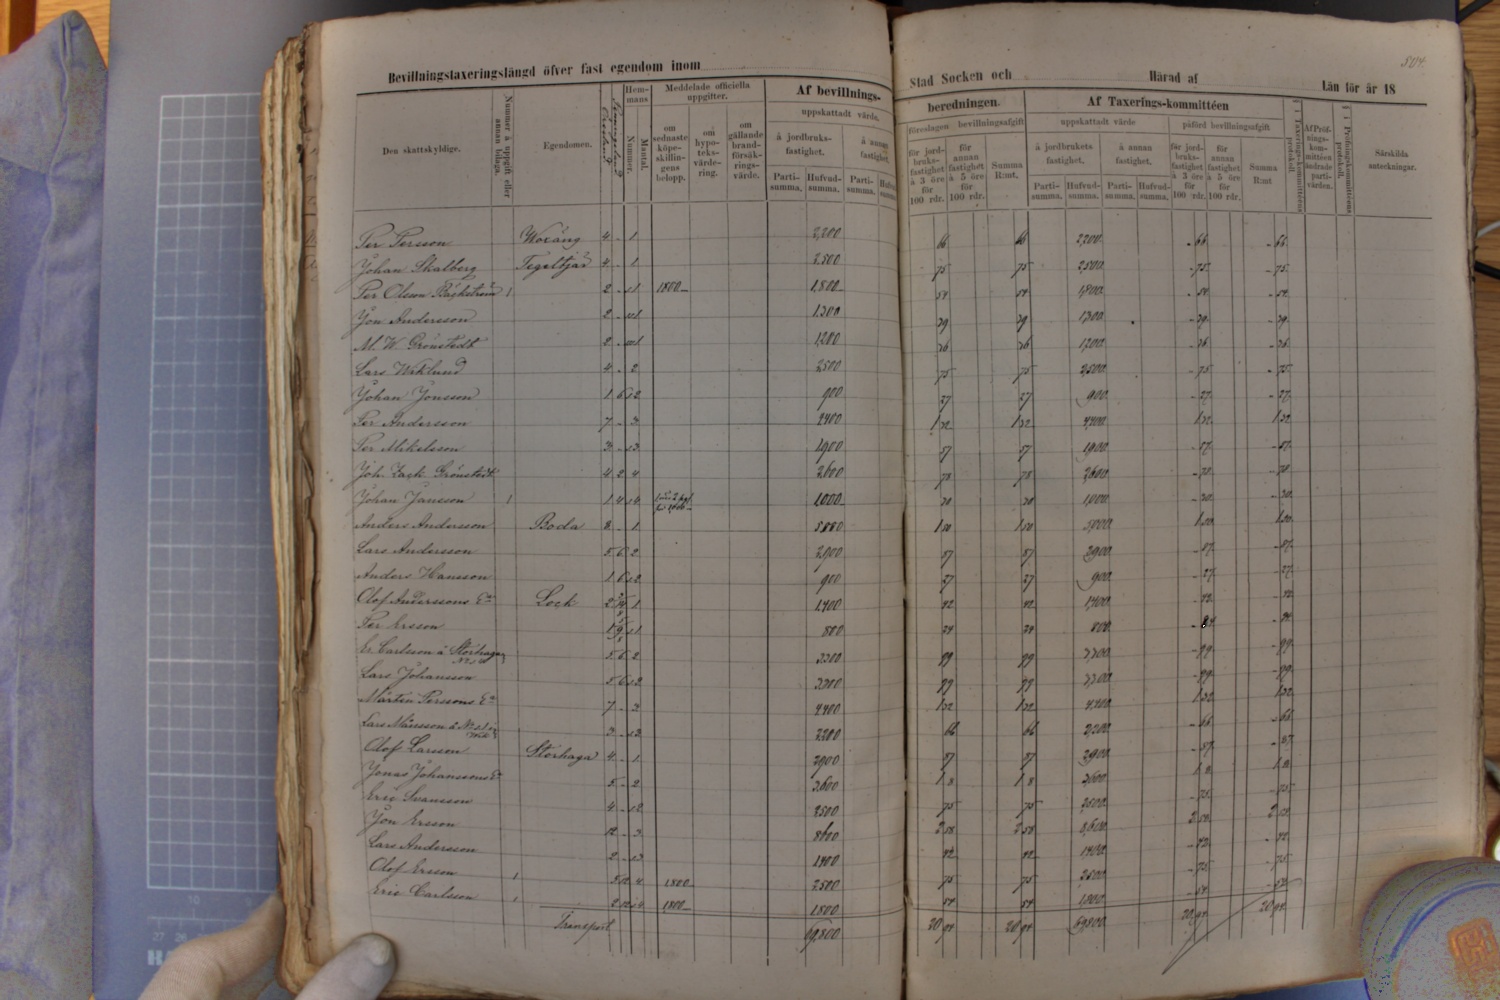 Bevillningstaxeringslängd öfver fast egendom inom
Stad Socken och Härad af Län för år 18
Den skattskyldige.
Nummer å uppgift eller annan bilaga.
Egendomen.
Hemmans
Nummer.
Mantal.
Meddelade officiella uppgifter.
om sednaste köpeskillingens belopp.
om hypoteksvärdering.
om gällande brandförsäkringsvärde.
Af bevillningsberedningen.
uppskattadt värde.
å jordbruksfastighet.
å annan fastighet.
Partisumma.
Hufvudsumma.
Partisumma.
föreslagen bevillningsafgift
för jordbruksfastighet à 3 öre för 100 rdr.
för annan fastighet à 5 öre för 100 rdr.
Summa R:mt.
Af Taxerings-kommittéen
uppskattadt värde
å jordbrukets fastighet.
å annan fastighet.
Partisumma.
Hufvudsumma.
Partisumma.
Hufvudsumma.
påförd bevillningsafgift
för jordbruksfastighet à 3 öre för 100 rdr.
för annan fastighet à 5 öre för 100 rdr.
Summa R:mt
Särskilda anteckningar.
Per Persson Woxäng 4 - 1 2,200 66 66 2,200 - 66 - 66
Johan Skalberg Tegeltjäd 4 - 1 2,500 75 75 2,500 - 75 - 75
Per Olsson Bäckström 1 2 1800 1,800 54 54 1,800 - 54 - 54
Jon Andersson 2 1,300 39 39 1,300 - 39 - 39
M. W. Grönstedt 2 1,200 36 36 1,200 - 36 - 36
Lars Wiklund 4 - 2 2,500 75 75 2,500 - 75 - 75
Johan Jonsson 1 6 900 27 27 900 - 27 - 27
Per Andersson 7 - 3 4400 1 32 1 32 4,400 1 32 1 32
Per Mikelsson 3 1900 57 57 1,900 - 57 - 57
Joh. Zach. Grönstedt 4 2 4 2600 78 78 2,600 - 78 - 78
Johan Jansson 1 1 4 1,000 30 30 1,000 - 30 - 30
Anders Andersson Boda 8 - 1 5,000 1 50 1 50 5,000 1 50 1 50
Lars Andersson 5 6 2 2,900 87 87 2,900 - 87 - 87
Anders Hansson 1 6 900 27 27 900 - 27 - 27
Olof Anderssons Ea Lock 1,400 42 42 1,400 - 42 - 42
Per Ersson 800 24 24 800 - 24 - 24
Er. Carlsson å Storhaga 5 6 2 3300 99 99 3,300 - 99 - 99
Lars Johansson 5 6 3300 99 99 3,300 - 99 - 99
Mårten Perssons Ea 7 - 3 4400 1 32 1 32 4,400 1 32 1 32
Lars Månsson å 3 2200 66 66 2,200 - 66 - 66
Olof Larsson Storhaga 4 - 1 2900 87 87 2,900 - 87 - 87
Jonas Johanssons Ea 5 - 2 3,600 1 8 1 8 3,600 1 8 1 8
Eric Svansson 4 2500 75 75 2,500 - 75 - 75
Jon Ersson 12 - 3 8600 2 58 2 58 8,600 2 58 2 58
Lars Andersson 2 1400 42 42 1,400 - 42 - 42
Olof Ersson 1 4 1800 2500 75 75 2,500 - 75 - 75
Eric Carlsson 1 1800 1800 54 54 1,800 - 54 - 54
Transport 69,800 20 94 20 94 69,800 20 94 20 94